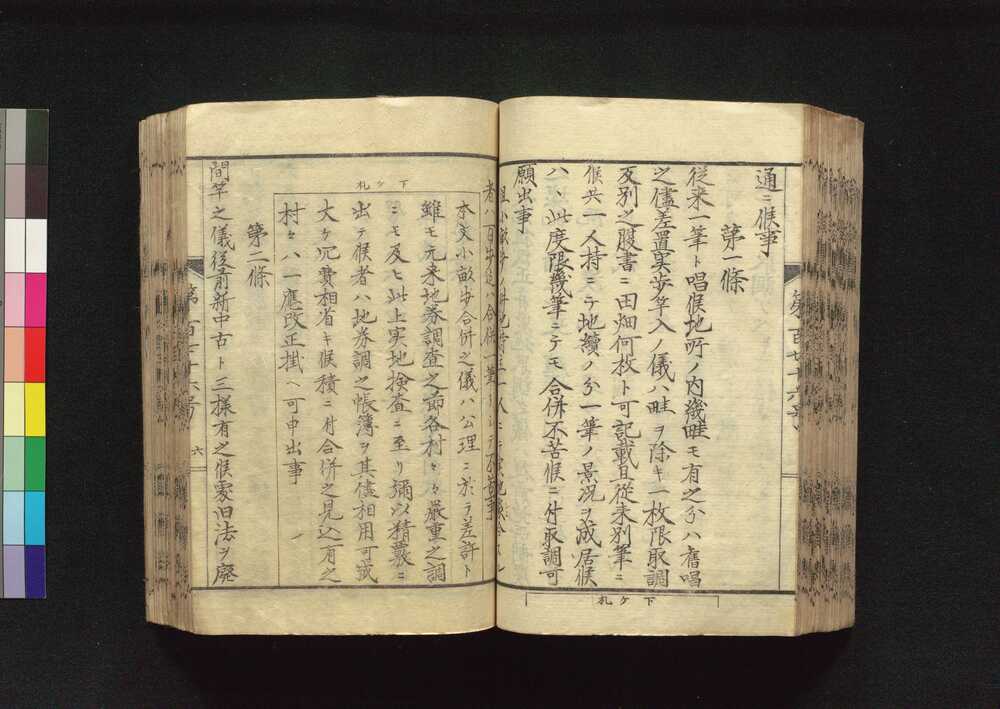 通ニ候事
第一條
従来一筆ト唱候地所ノ内幾畦モ有之分ハ舊唱
之儘差置実歩竿入ノ儀ハ畦ヲ除キ一枚限取調
反別之腹書ニ田畑何枚ト可記載且従来別筆ニ
候共一人持ニテ地續ノ分一筆ノ景况ヲ成居候
ハヽ此度限幾筆ニテモ合併不苦候ニ付取調可
願出事
下ケ札
第百七十六号
者ハ百歩迄ハ合併一筆
下ケ札
本文小畝歩合併之儀ハ公理ニ於テ差許ト
雖モ元来地券調査之節各村々々嚴重之調
ニモ及ヒ此上実地検査ニ至リ彌以精覈ニ
出テ候者ハ地券調之帳簿ヲ其儘相用可或
大ケ冗費相省キ候積ニ付合併之見込有之
村々ハ一應改正掛ヘ可申出事
第二條
間竿之儀従前新中古ト三様有之候處旧法ヲ廢
第百七十六号
六